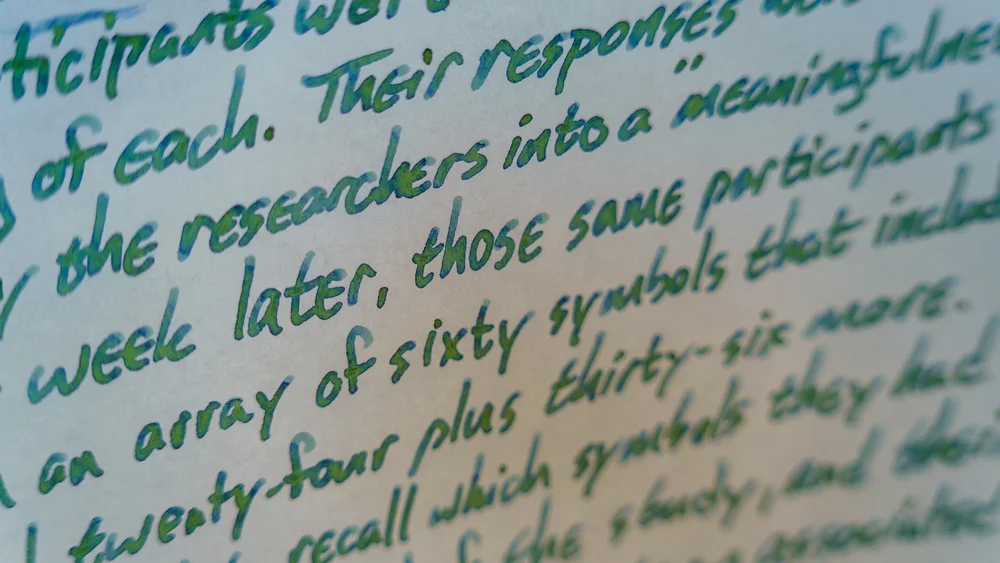 ticipants wer
of each. Their responses
the researchers into a "meaningfulnes
week later, those same participants
an array of sixty symbols that includ
twenty-four plus thirty-six more.
recall which symbols they had
of the study, and their
associated